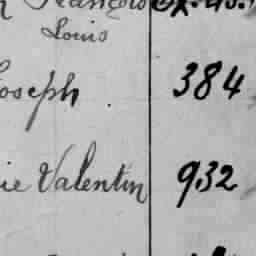 François
Louis
Joseph . 384
ie Valentin 932